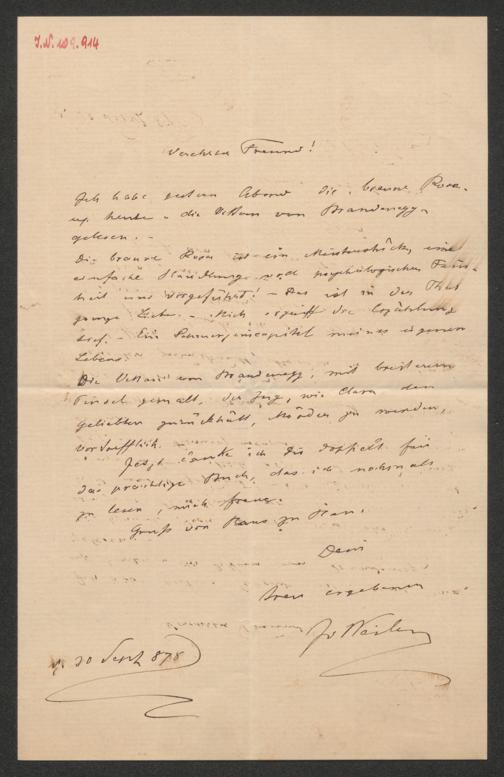 J.N. 109.914
Verehrter Freund!
Ich habe gestern Abend die "braune Rosa"
u. heute "die Vestam von Brandenegg"
gelesen. -
Die braune Rosa ist ein Meisterstück, eine
einfache Handlung und psychologischer Fein-
heit uns vorgeführt! - Das ist in der That
Liebe. - Mich ergriff die Erzählung
tief. - Ein capitel meines eigenen
Lebens.
Die von Brandenegg, mit breiterem
Pinsel gemalt. Der Zug, wie Clara den
Geliebten zurückhält, Mörder zu werden,
vortrefflich.
Jetzt danke ich dir doppelt für
das prächtige Buch, das ich nochmals
zu lesen, mich freue.
Gruß von Haus zu Haus.
Dein
treu ergebener
30 Sept 878